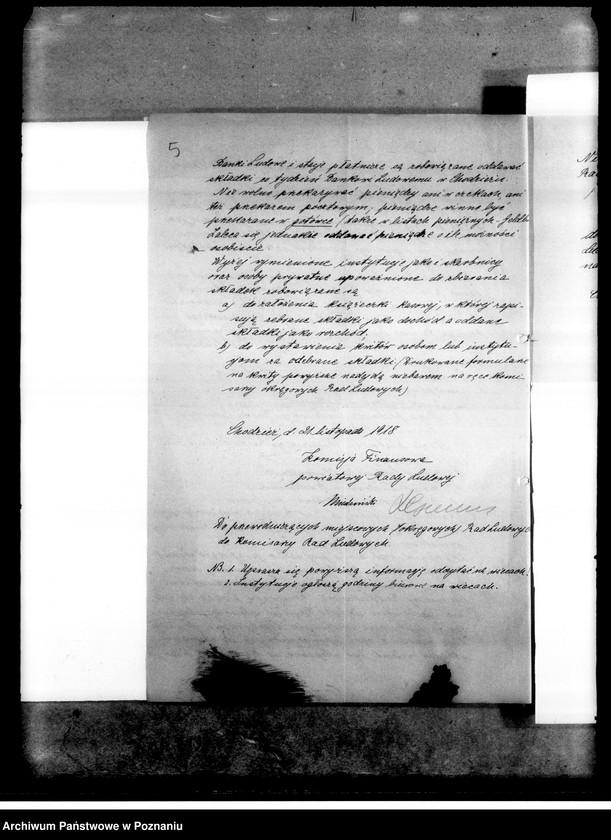 5
Banki Ludowe i stacje płatnicze są zobowiązane oddawać
składki co tydzień Bankowi Ludowemu w Chodzieży.
Nie wolno przekazywać pieniędzy ani w czekach, ani
też przekazem pocztowym; pieniądze winne być
przesłane w gotówce /także w listach pieniężnych.
Zaleca się jednakże oddawać pieniądze o ile możności
osobiście.
Wyżej wymienione instytucje jako i skarbnicy
oraz osoby prywatne upoważnione do zbierania
składek zobowiązane są
a) do założenia książeczki kasowej, w której zapi-
sują zebrane składki jako dochód a oddane
składki jako rozchód.
b) do wystawienia kwitów osobom lub instytu-
cjom za odebrane składki /Drukowane formularze
na kwity powyższe nadejdą niebawem na ręce komi-
sarzy okręgowych Rad Ludowych/
Chodzież, d 21. listopada 1918
Komisja Finansowa
powiatowej Rady Ludowej
Do przewodniczących miejscowych /okręgowych/ Rad Ludowych
do Komisarzy Rad Ludowych.
NB. 1. Uprasza się powyższą informację odczytać na wiecach.
2. Instytucje ogłoszą godziny biurowe na wiecach.
Archiwum Państwowe w Poznaniu